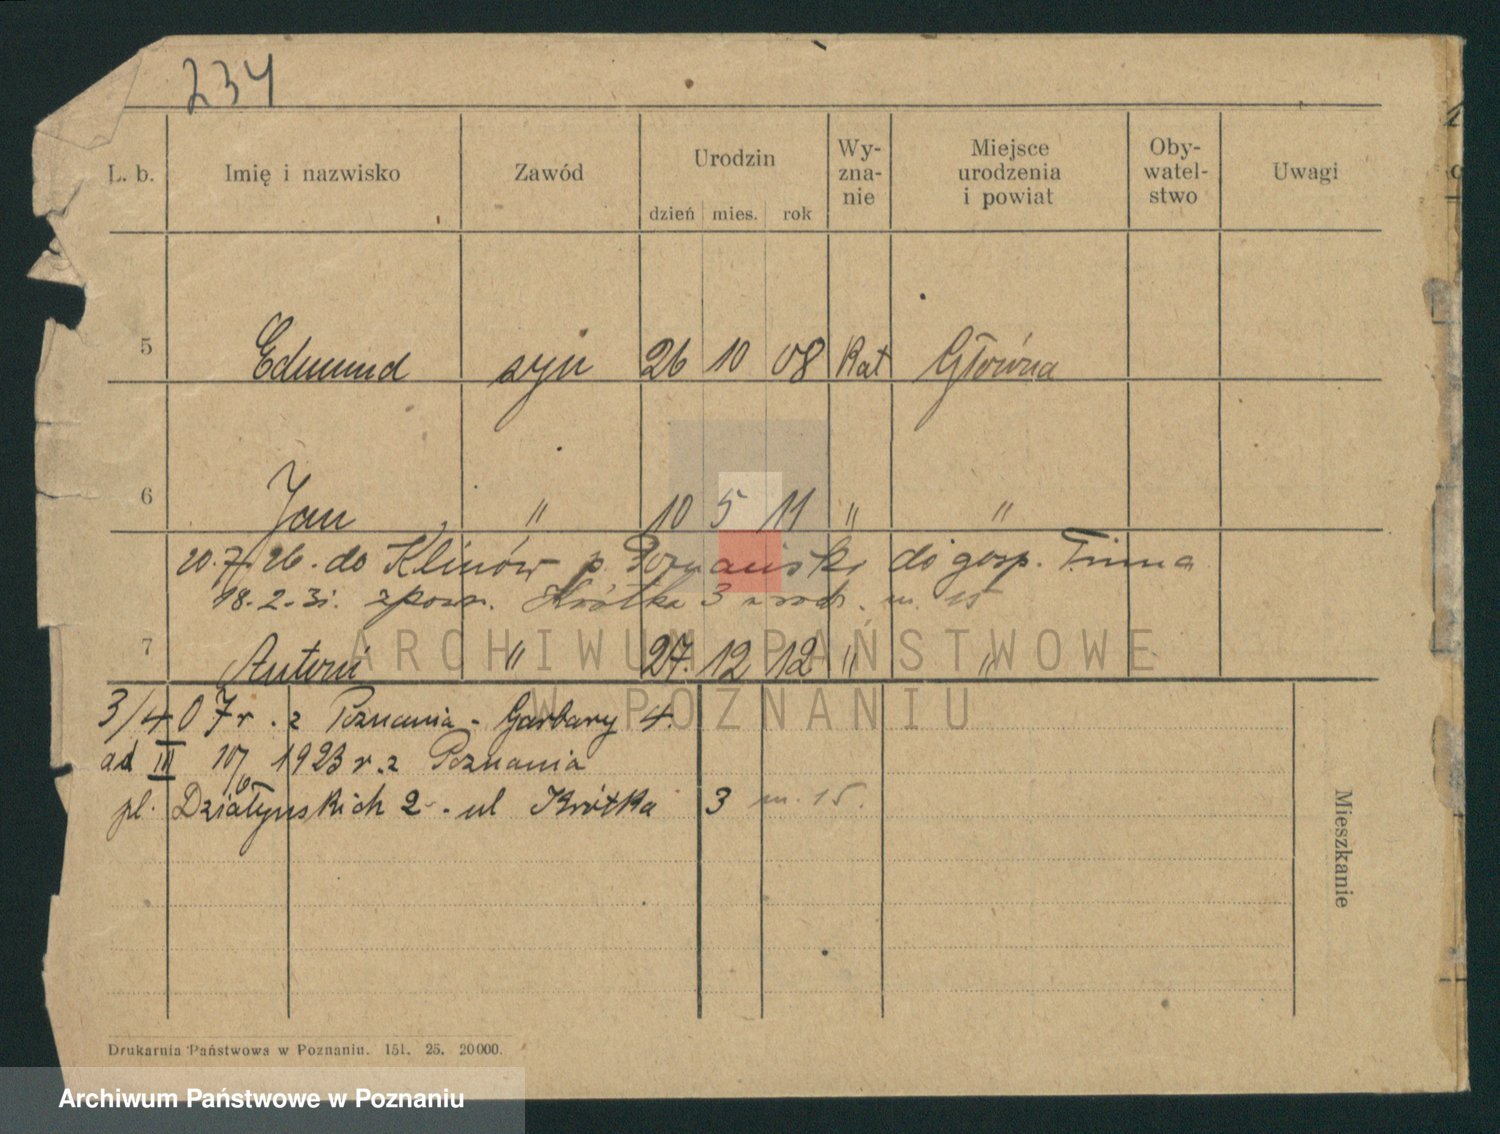 234
L. b. Imię i nazwisko Zawód Urodzin Wy- zna- nie Miejsce urodzenia i powiat Oby- watel- stwo Uwagi
dzień mies. rok
5 Edmund syn 26 10 08 Kat Główna
6 Jan " 10 5 11 " "
20.7.26. do Klinów p. Poznański do gosp.
18.2.31. z pow. Krótka 3 m. 15
7 Antoni " 27. 12 12 " "
3/4 07 r. z Poznania - Garbary 4.
ad III 10/6 1923 r. z Poznania
pl. Działyńskich 2 - ul Krótka 3 m. 15.
Mieszkanie
Drukarnia Państwowa w Poznaniu. 151. 25. 20000.
ARCHIWUM PAŃSTWOWE
W POZNANIU
Archiwum Państwowe w Poznaniu